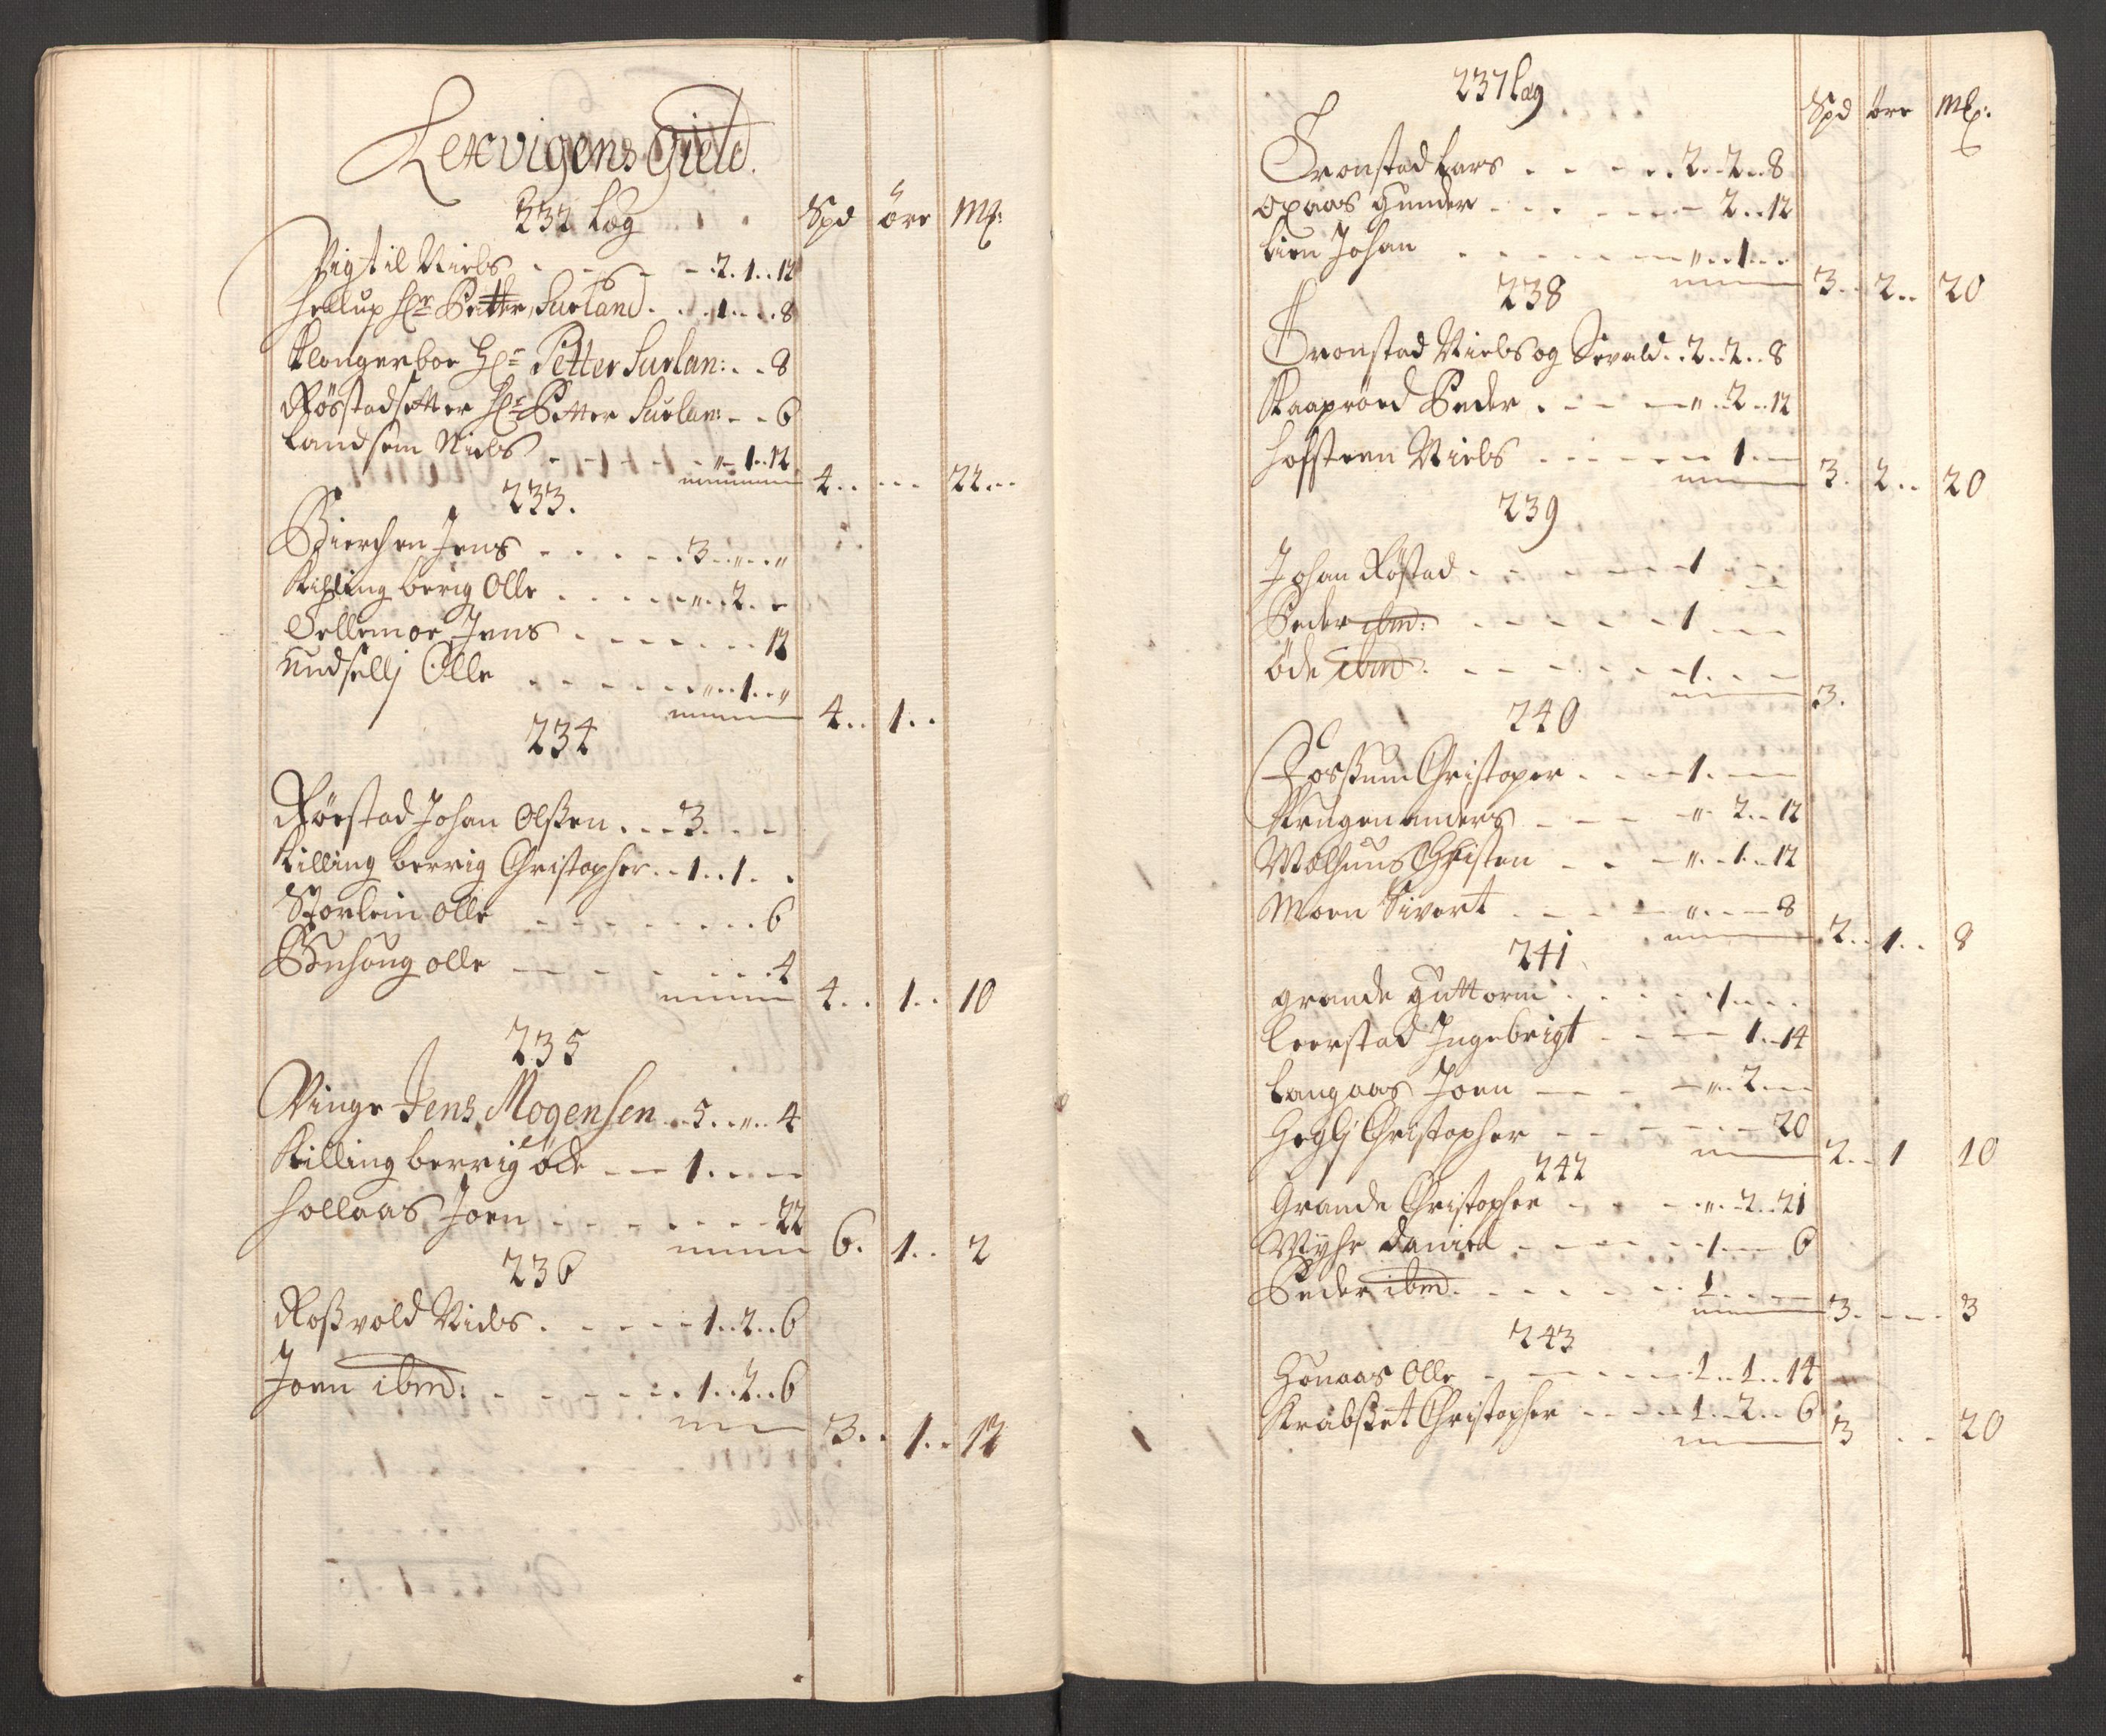 Lexvigens Gield.
232 Læg
Spd öre Mk:
Vigtil Niels - - - - 2. 1.. 12
Hellup Hr Petter Surland. . . 1. . . 8
Klongerboe Hr Petter Surlan: . . 8
Röstadsetter Hr Petter Surlan: - - 6
Landsem Niels - - - - „ - 1.. 12
4.. - - - 22..
233.
Bierchen Jens - . . . . 3..„..„
Killing berig Olle . . . . . „.. 2. -
Sellemoe Jens . - - - - . . 12
Undsellj Olle - - - - - - „.. 1..„
4.. 1..
234
Röstad Johan Olsen . . . 3. - -
Killing berrig Christopher. . 1.. 1. .
Storlein Olle - - - - . . . 6
Buhaug olle - - - - . . . 4
4.. 1.. 10
235
Vinge Jens Mogensen . . 5..„.. 4
Killing berrig öde - - - 1. . - -
Hollaas Joen - - - . . - - 22
6. 1.. 2
236
Rosvold Niels . - - - - 1.. 2.. 6
Joen ibm: - - - - - . 1.. 2.. 6
3.. 1.. 12
237 læg
Spd öre Mk:
Tronstad Lars . - - - . . 2.. 2.. 8
Opaas Gunder - - . - - - - 2.. 12
Lien Johan - - - - - - „.. 1. . .
3.. 2.. 20
238
Tronstad Niels og Sevald. . 2.. 2.. 8
Kaapröed Peder . - - - „.. 2.. 12
Hofsteen Niels . . - - - - 1. - -
3. 2.. 20
239
Johan Röstad - - - - - - 1 - - -
Peder ibm: - - - - - - 1 - - -
öde ibm: - - - - - - 1. - -
3.
240
Fossum Christoper . - - - 1. - -
Krugen anders - - - - „. 2.. 12
Molhuus Christen - - - „.. 1.. 12
Moen Sivert . - - - „. . - - 8
2.. 1.. 8
241
grande Guttorm . . . . . 1. . . .
Leerstad Ingebrigt - - - - 1.. 14
Langaas Joen - - - - „.. 2. - -
Heglj Christopher - - - - - - 20
2.. 1 10
242
Grande Christopher - - - „.. 2.. 21
Myhr Daniel - - - - - 1. - - 6
Peder ibm. - - - - - - 1 - - -
3. - - - . 3
243
Hönaas Olle - - - - - 1.. 1.. 14
Krabset Christopher - - - - 1.. 2.. 6
3 . . 20